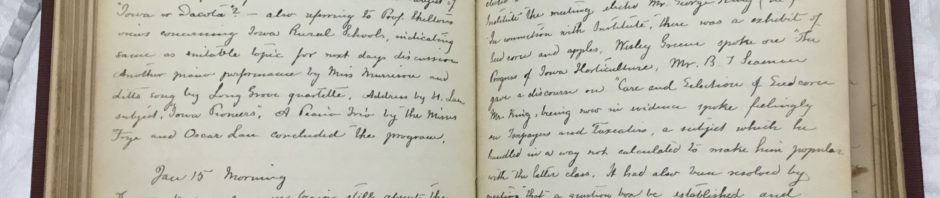 "Iowa or Dacota"? – also referring to Prof. Sheltons
views concerning Iowa Rural Schools, indicating
same as suitable topic for next days discussion
Another piano performance by Miss Murrison and
ditto song by Long Grove quartette. Address by H. Lau
subject, "Iowa Pioneers," A Piano Trio by the Misses
Frye and Oscar Lau concluded the program.
Jan 15 Morning
still about the
Institute" the meeting elected Mr. George
In connection with Institute, there was a exhibit of
Seed corn and apples, Wesley Greene spoke on "The
Progress of Iowa Horticulture, Mr. B. T. Seaman
gave a discourse on "Care and Selection of Seed corn
Mr. King, being now in evidence spoke feelingly
on Taxpayers and Taxeaters, a subject which he
handled in a way not calculated to make him popular
with the latter class. It had also been resolved by
meeting that a question box be established and